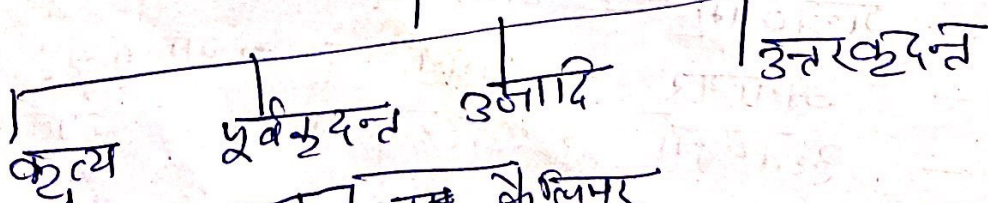 कृत्य पूर्वकृदन्त उणादि उत्तरकृदन्त